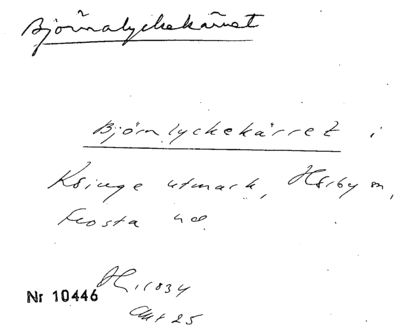 Björnalyckekärret
Björnlyckekärret i
Ksinge utmark, Hörby sn,
Frosta hd
H. 1834
Nr 10446
Akt 25